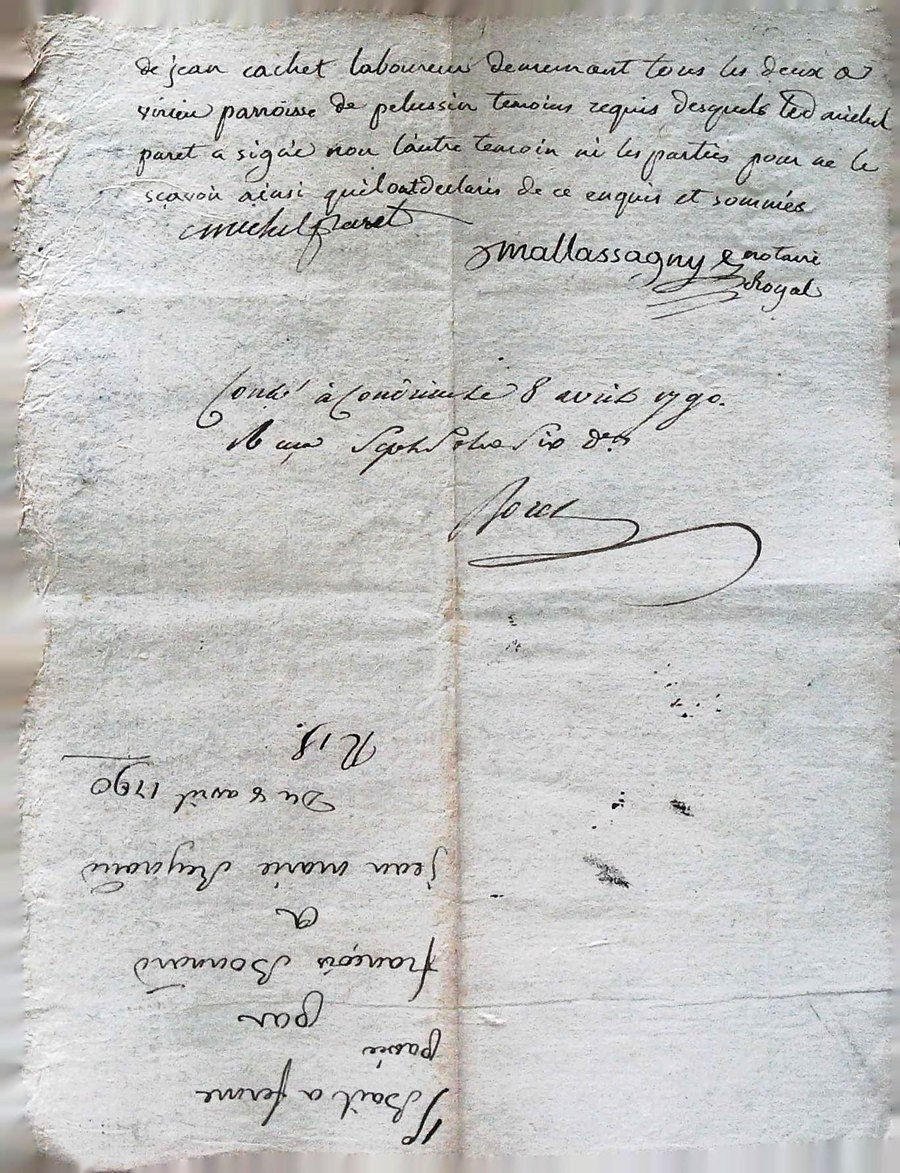 de jean cachet laboureur demeurant tous les deux a
virieu parroisse de pelussin temoins requis desquels led michel
paret a signé non l'autre temoin ni les parties pour ne le
sçavoir ainsi quil ont declaré de ce enquis et sommés
michel paret
Mallassagny notaire
Royal
Conlé à Condrieu le 8 avril 1790.
Sept Six d.rs
Bail a ferme
passée
par
françois Bonnard
a
jean marie Reynaud
Du 8 avril 1790
R 15.